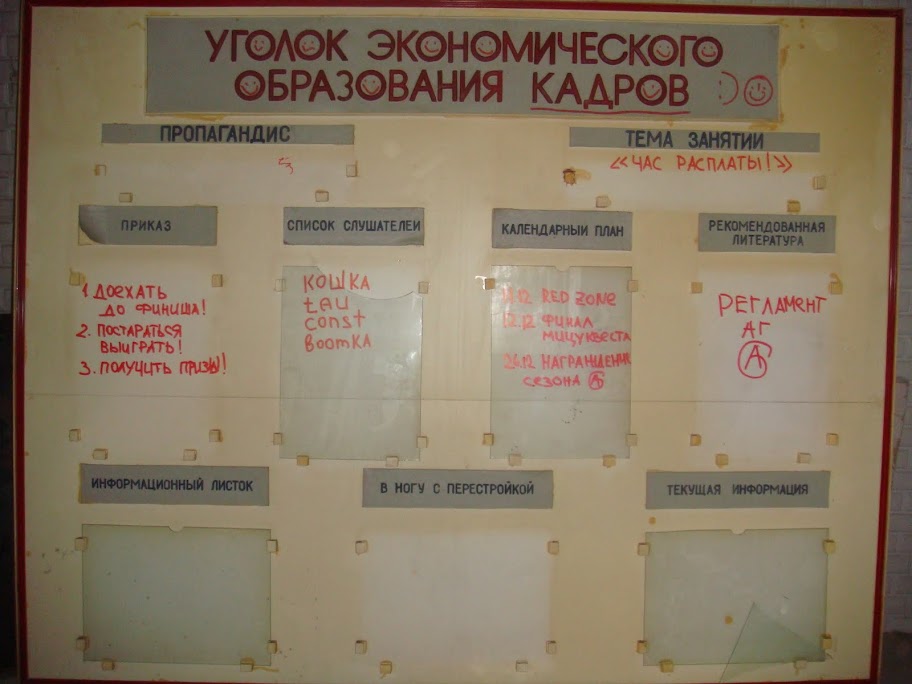 УГОЛОК ЭКОНОМИЧЕСКОГО
ОБРАЗОВАНИЯ КАДРОВ :)
ПРОПАГАНДИС
ТЕМА ЗАНЯТИИ
«ЧАС РАСПЛАТЫ!»
ПРИКАЗ
1 ДОЕХАТЬ
ДО ФИНИША!
2. ПОСТАРАТЬСЯ
ВЫИГРАТЬ!
3. ПОЛУЧИТЬ ПРИЗЫ!
СПИСОК СЛУШАТЕЛЕЙ
КОШКА
tau
const
BOOMKA
КАЛЕНДАРНЫЙ ПЛАН
RED ZONE
12.12 ФИНАЛ
МИЦУКВЕСТА
26.12 НАГРАЖДЕНИЕ
СЕЗОНА АГ
РЕКОМЕНДОВАННАЯ
ЛИТЕРАТУРА
РЕГЛАМЕНТ
АГ
А
ИНФОРМАЦИОННЫЙ ЛИСТОК
В НОГУ С ПЕРЕСТРОЙКОЙ
ТЕКУЩАЯ ИНФОРМАЦИЯ